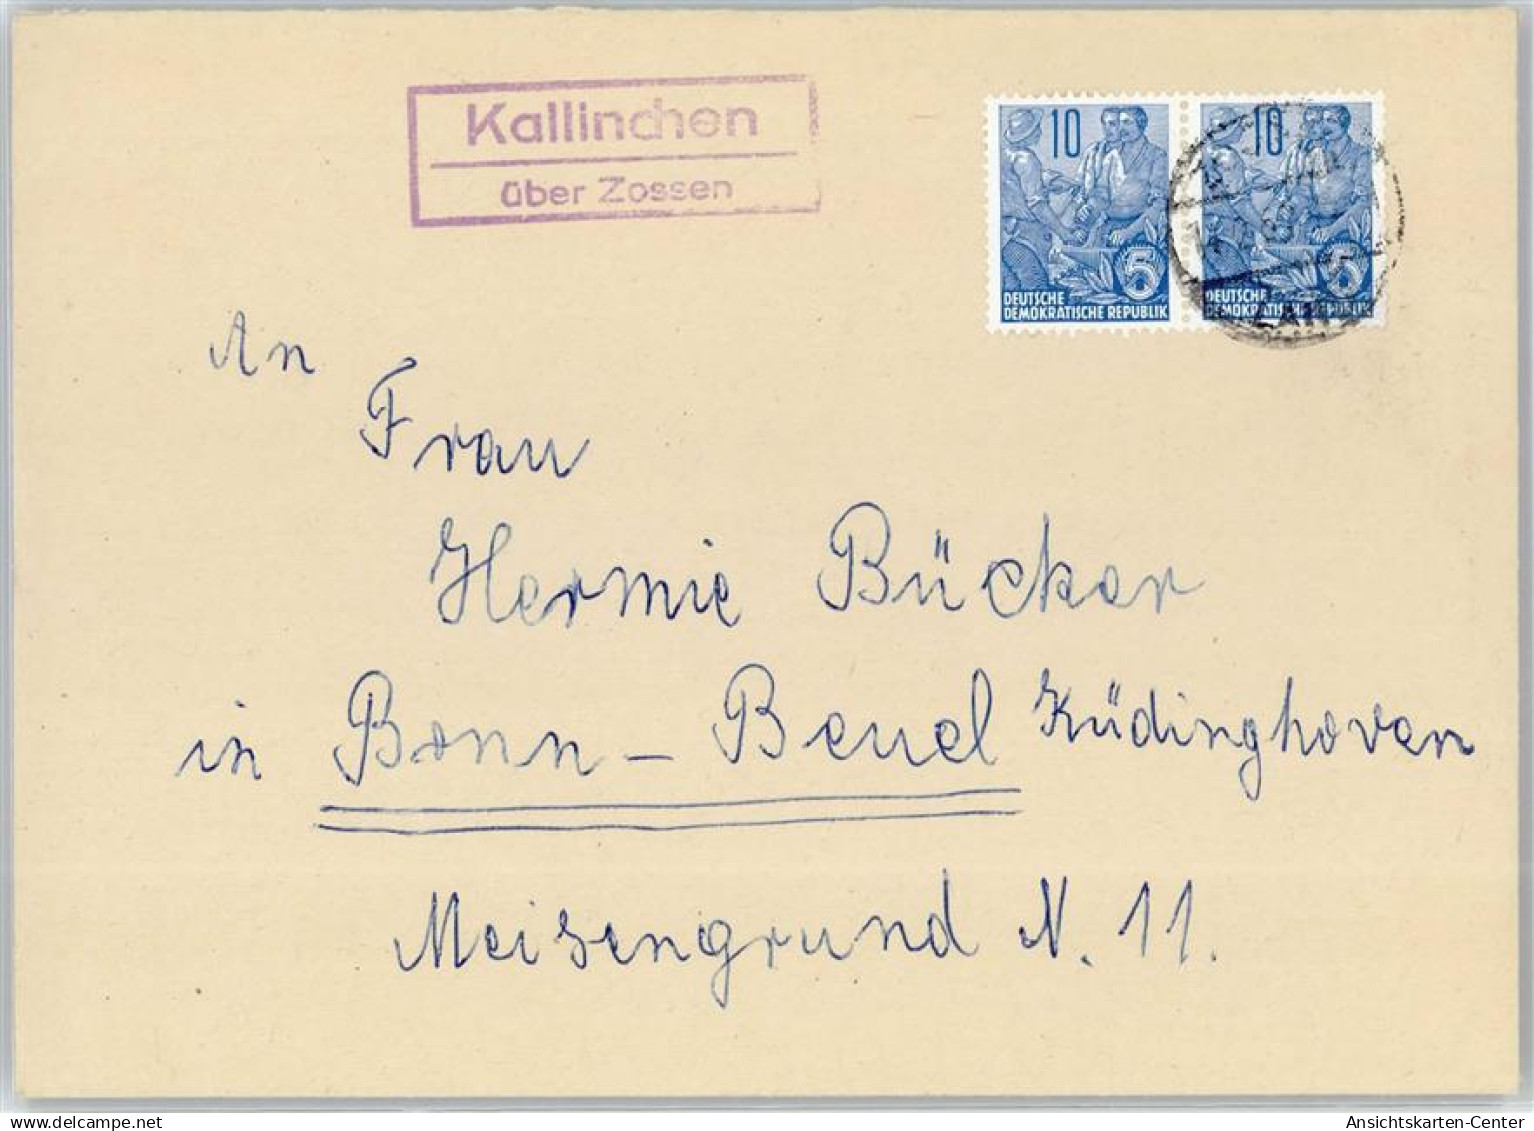 Kallinchen
über Zossen
10 10
5 5
DEUTSCHE DEUTSCHE
DEMOKRATISCHE REPUBLIK DEMOKRATISCHE REPUBLIK
An
Frau
Hermie Bücker
in Bonn - Beuel Küdinghoven
Meisengrund N. 11.
www.delcampe.net
Ansichtskarten-Center